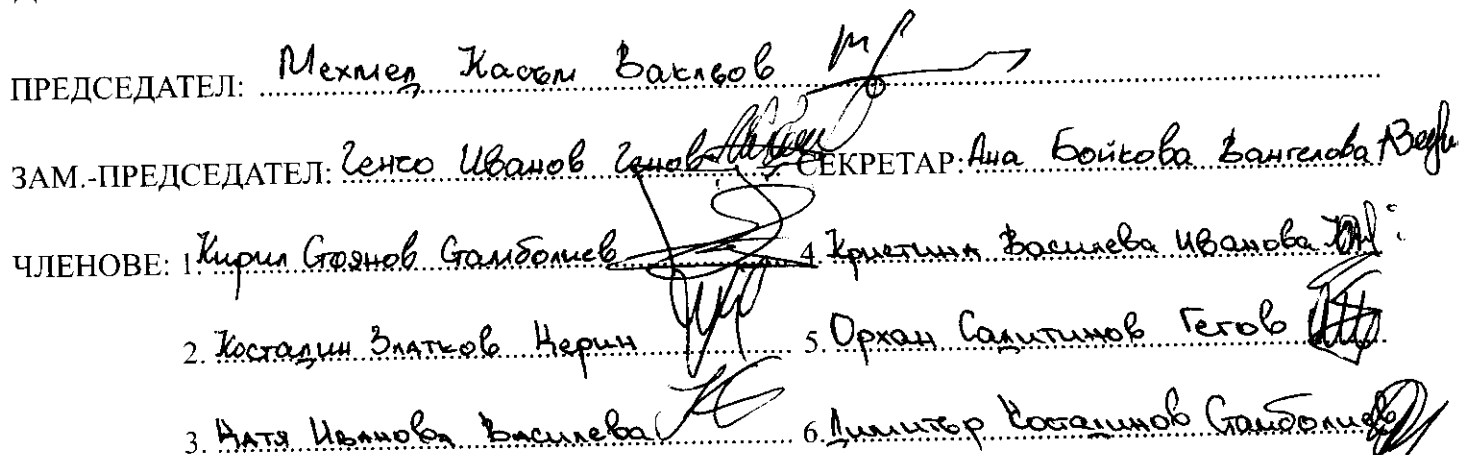 ПРЕДСЕДАТЕЛ: Мехмед Касъм Вакльов
ЗАМ.-ПРЕДСЕДАТЕЛ: Генчо Иванов Генов СЕКРЕТАР: Ана Бойкова Вангелова
ЧЛЕНОВЕ: 1. Кирил Стоянов Стамболиев 4. Кристина Василева Иванова
2. Костадин Златков Церин 5. Орхан Салитинов Гегов
3. Катя Иванова Василева 6. Димитър Костадинов Стамболиев